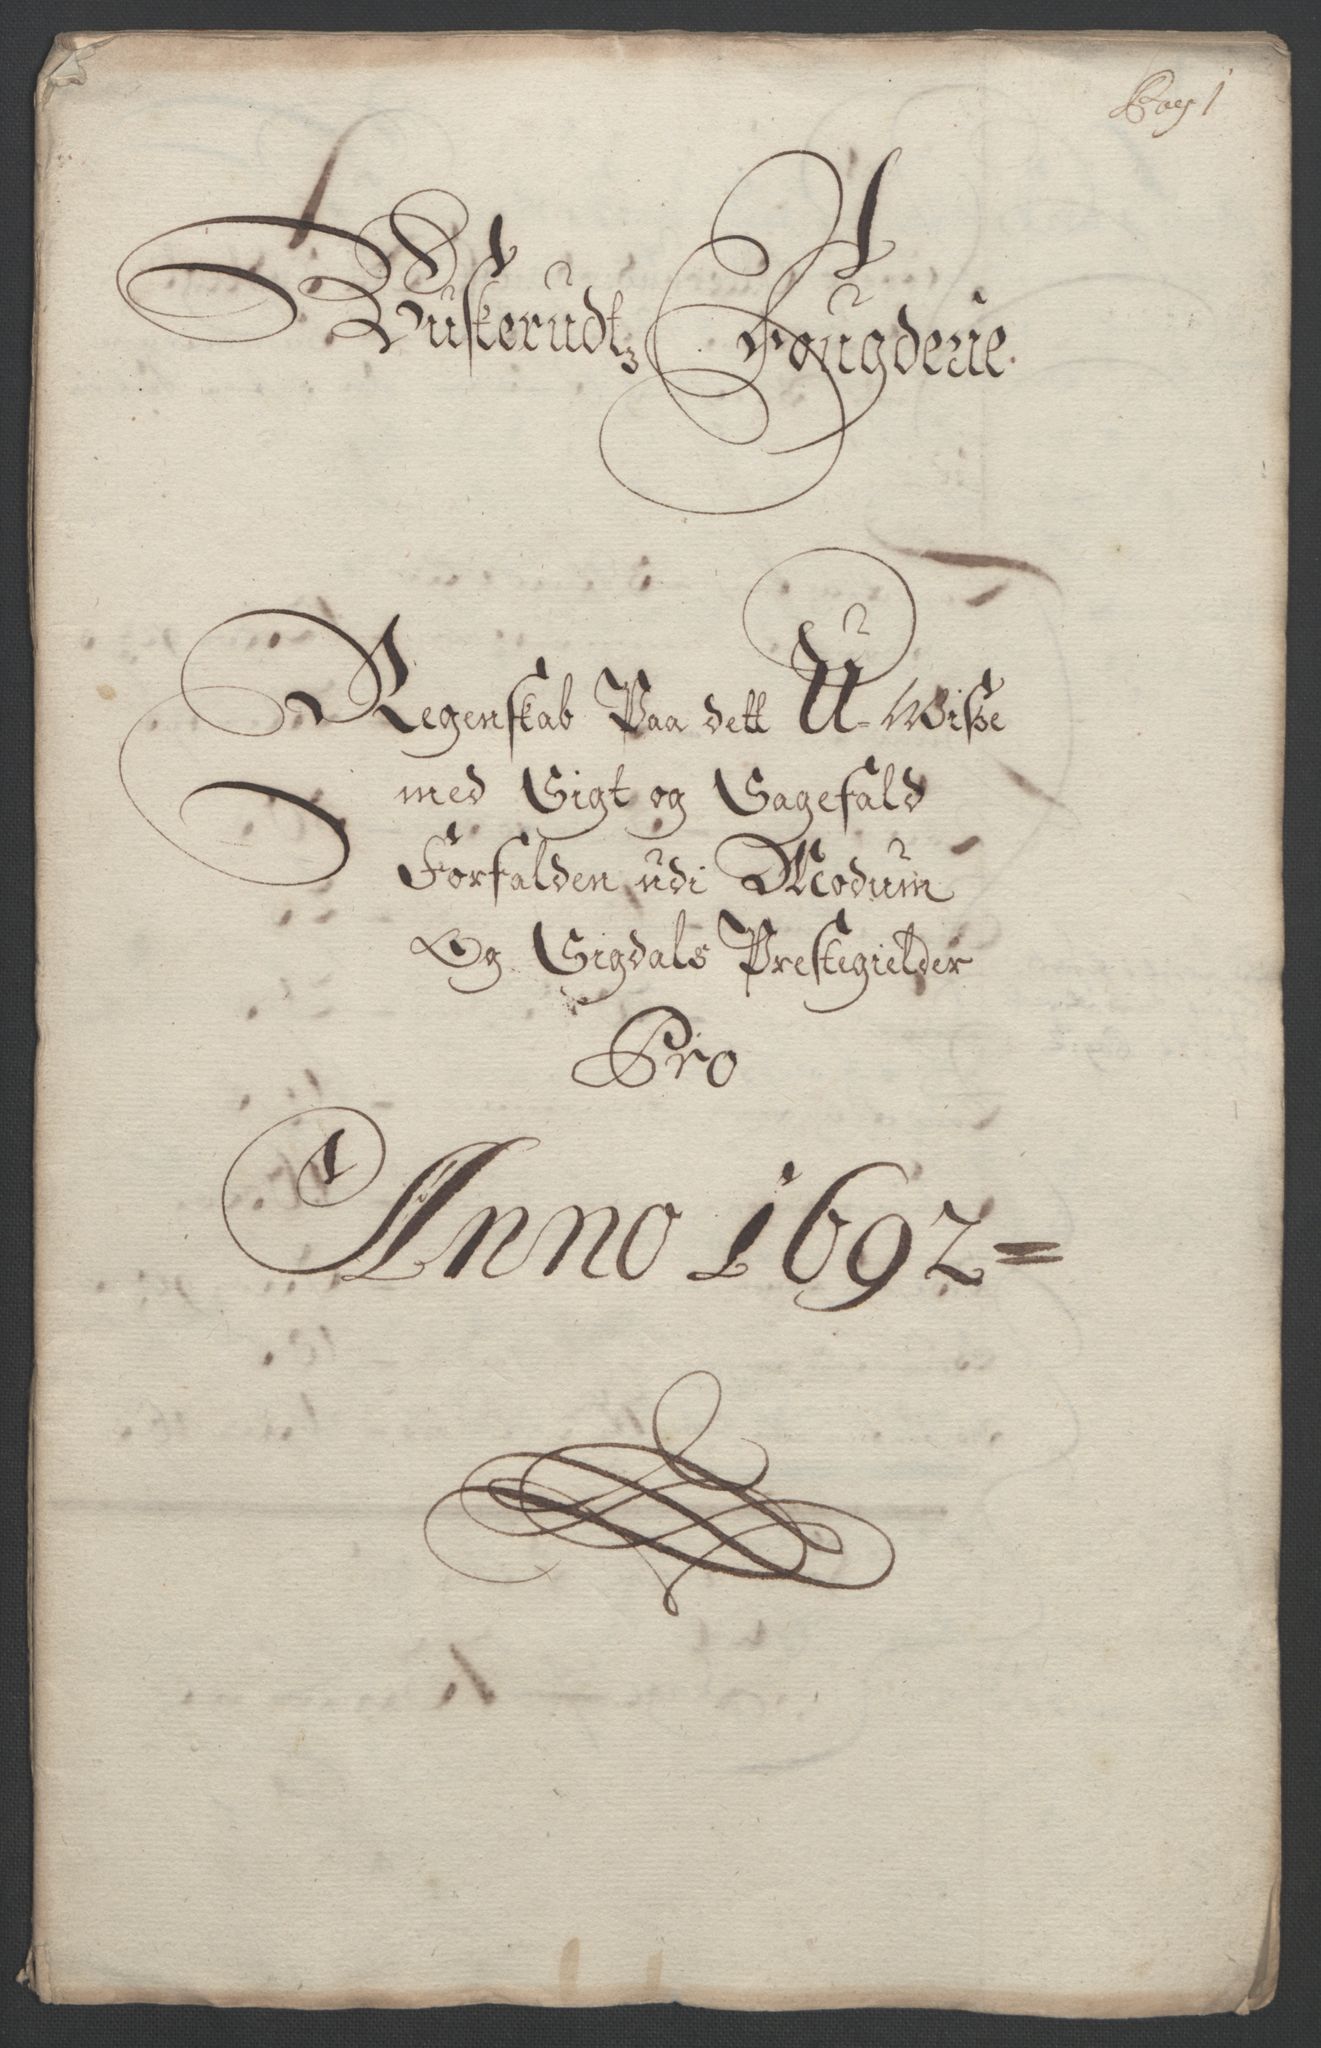 Pag 1
Buskerudtz Fougderie.
Regenskab Paa dett U-Wiße
med Sigt og Sagefald
Forfalden udi Modum
Og Sigdals Prestegielder
Pro
Anno 1692=